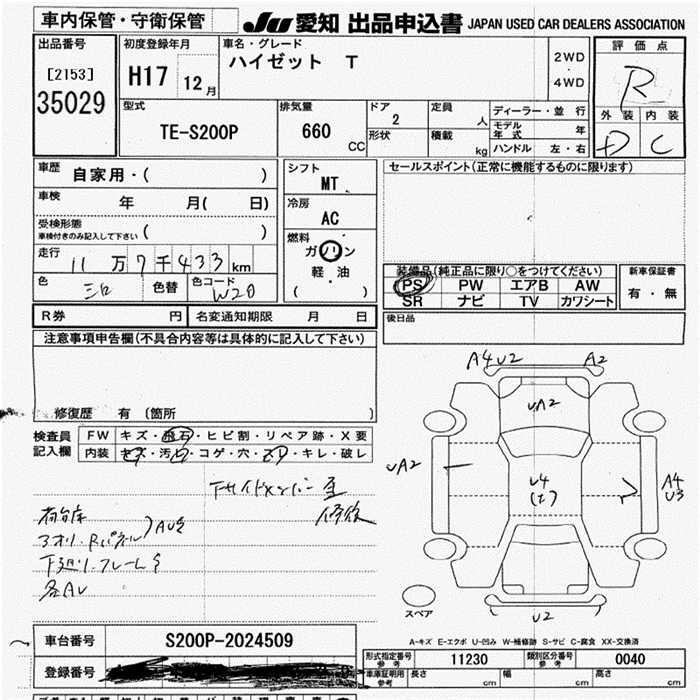 車内保管・守衛保管
JU 愛知 出品申込書 JAPAN USED CAR DEALERS ASSOCIATION
出品番号
[2153]
35029
初度登録年月
H17 12月
車名・グレード
ハイゼット T
2WD
・
4WD
評価点
R
外装 内装
D C
型式
TE-S200P
排気量
660 CC
ドア
2
形状
定員
人
積載
kg
ディーラー・並行
モデル年式 年
ハンドル 左・右
車歴
自家用・( )
車検 年 月( 日)
受検形態
車検付きのみ記入して下さい ( )
走行
11万7千433km
色 色替 色コード
W20
シフト
MT
冷房
AC
燃料
ガソリン
軽・油
( )
セールスポイント(正常に機能するものに限ります)
装備品(純正品に限り○をつけてください)
PS PW エアB AW
SR ナビ TV カワシート
新車保証書
有・無
後日品
R券 円 名変通知期限 月 日
注意事項申告欄(不具合内容等は具体的に記入して下さい)
修復歴 有 〔箇所 〕
検査員記入欄
FW キズ・飛石・ヒビ割・リペア跡・X要
内装 キズ・汚レ・コゲ・穴・スレ・キレ・破レ
下サイドメンバー
修後
荷台床
アオリ・Rパネル
下廻リ・フレーム
各AU
A4U2 A2
UA2
UA2
U4
A4
U3
U2
スペア
A-キズ E-エクボ U-凹み W-補修跡 S-サビ C-腐食 XX-交換済
車台番号 S200P-2024509
登録番号
型式指定番号 参考 11230 類別区分番号 参考 0040
車庫証明用 参考 長さ cm 幅 cm 高さ cm